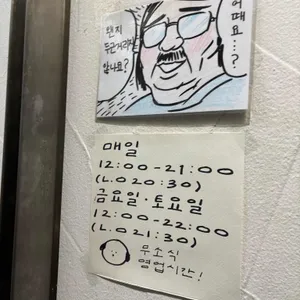 왠지
두근거리지
않나요?
어때요...?
매일
12:00-21:00
(L.O 20:30)
금요일·토요일
12:00-22:00
(L.O 21:30)
무소식
영업시간!